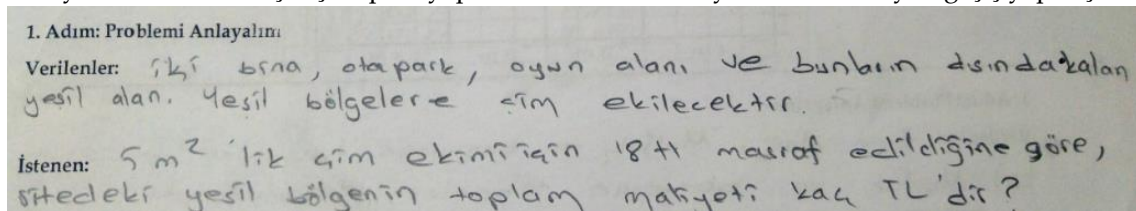 1. Adım: Problemi Anlayalım
Verilenler: iki bina, otapark, oyun alanı ve bunların dışında kalan
yeşil alan. Yeşil bölgelere çim ekilecektir.
İstenen: 5 m² 'lik çim ekimi için 18 tl masraf edildiğine göre,
sitedeki yeşil bölgenin toplam maliyeti kaç TL'dir?